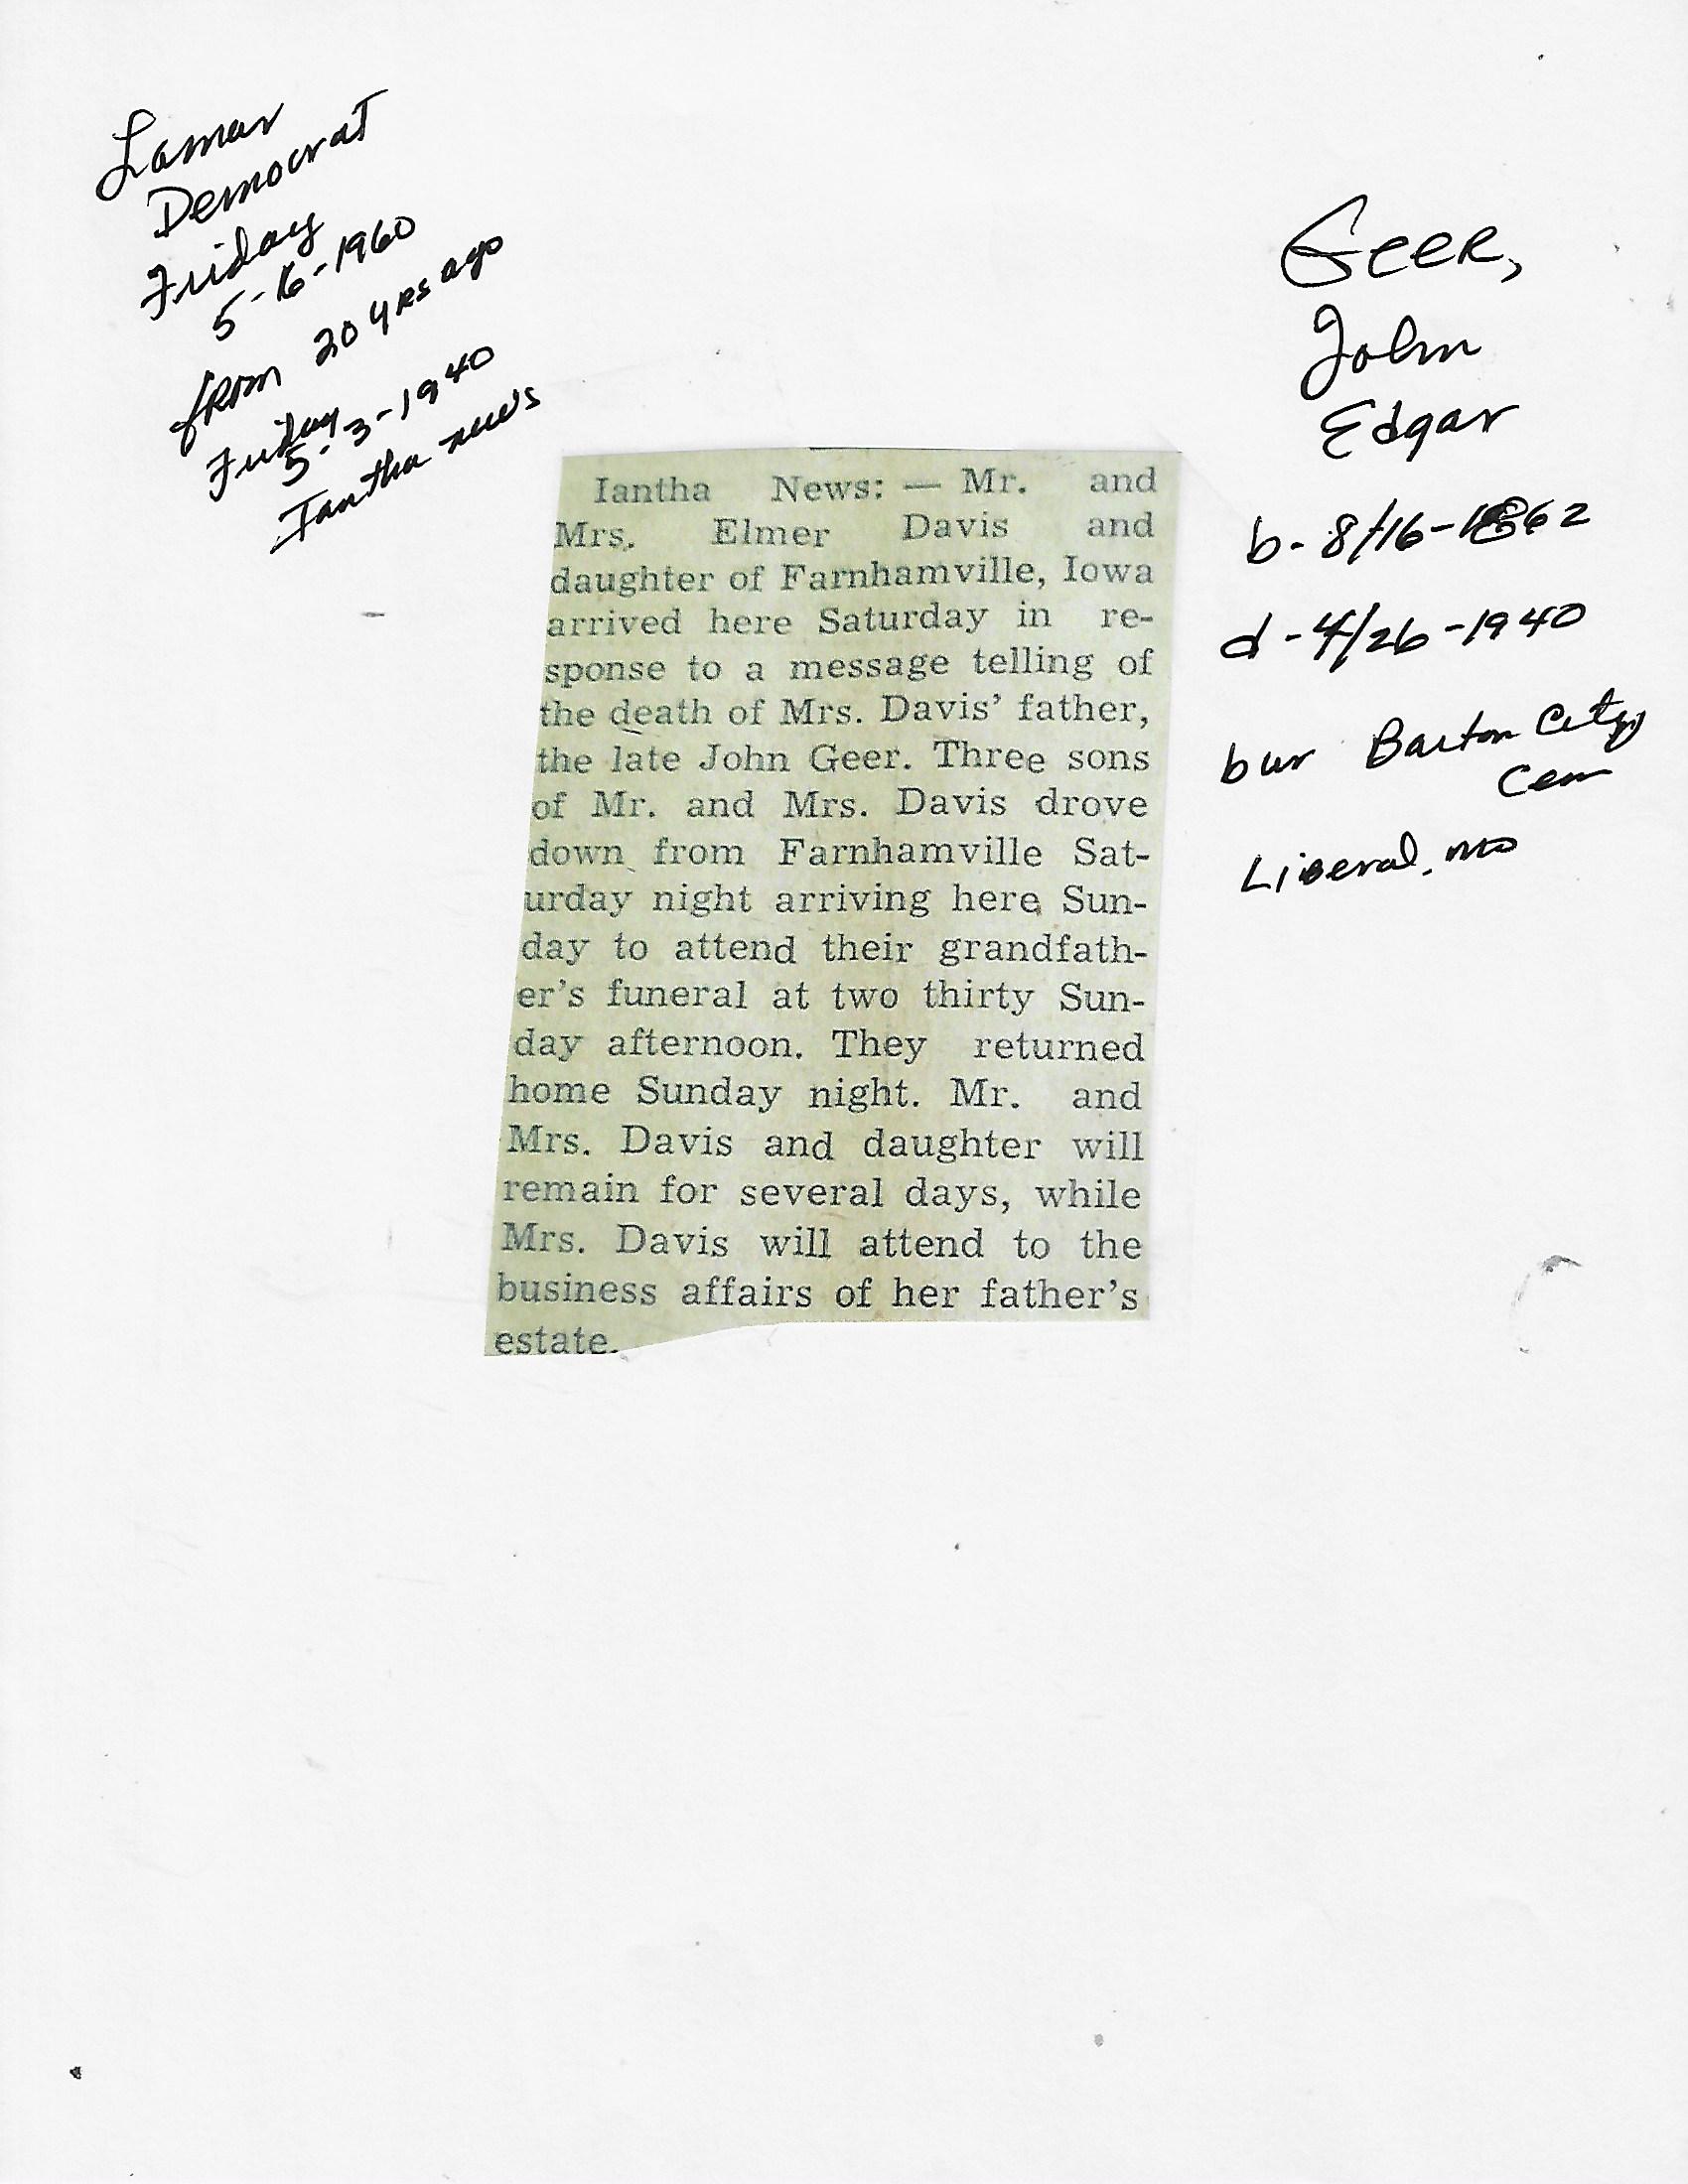 Lamar
Democrat
Friday
5-6-1960
from 20 yrs ago
Friday
5-3-1940
Iantha news
Geer,
John
Edgar
b- 8/16-1862
d-4/26-1940
bur Barton City
Cem
Liberal, mo
Iantha News: — Mr. and
Mrs. Elmer Davis and
daughter of Farnhamville, Iowa
arrived here Saturday in re-
sponse to a message telling of
the death of Mrs. Davis' father,
the late John Geer. Three sons
of Mr. and Mrs. Davis drove
down from Farnhamville Sat-
urday night arriving here Sun-
day to attend their grandfath-
er's funeral at two thirty Sun-
day afternoon. They returned
home Sunday night. Mr. and
Mrs. Davis and daughter will
remain for several days, while
Mrs. Davis will attend to the
business affairs of her father's
estate.